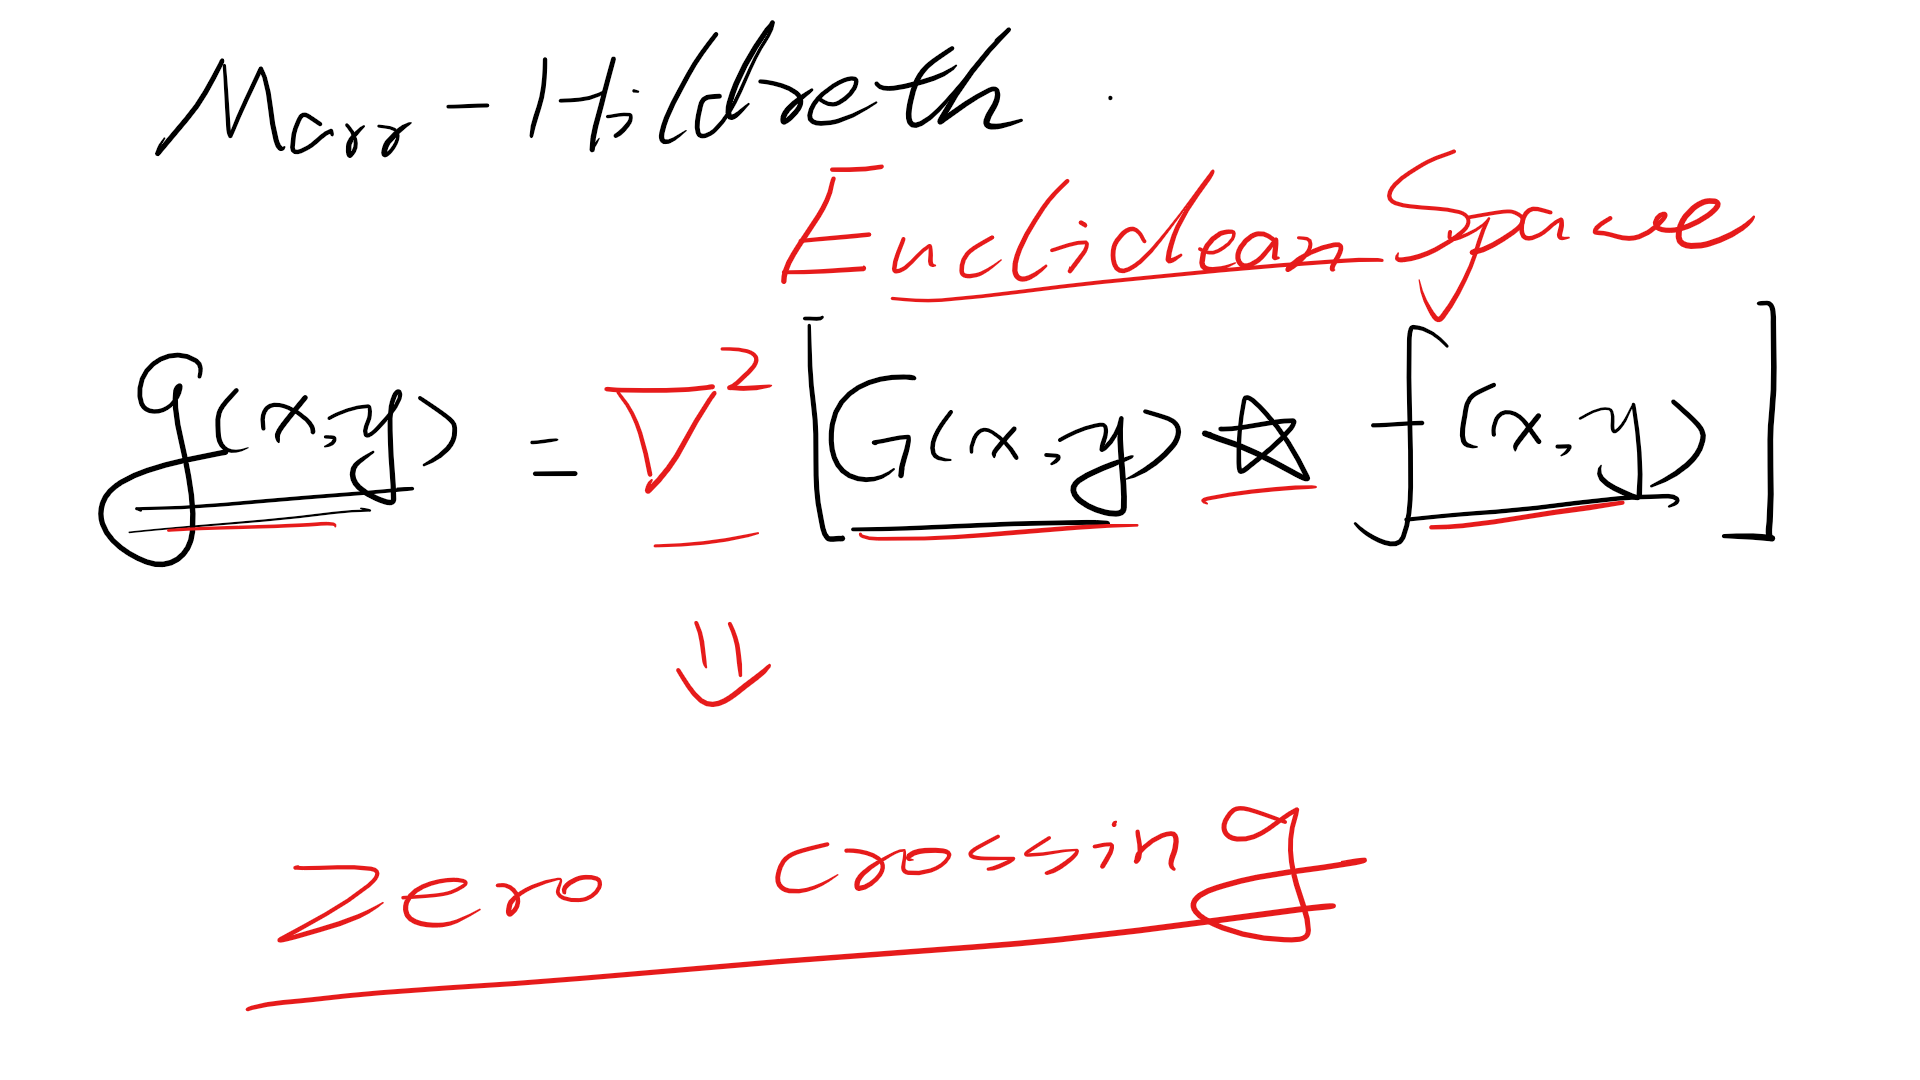 Marr - Hildreth
Euclidean Space
g(x,y) = ∇² [G(x,y) ☆ f(x,y)]
⇓
Zero crossing